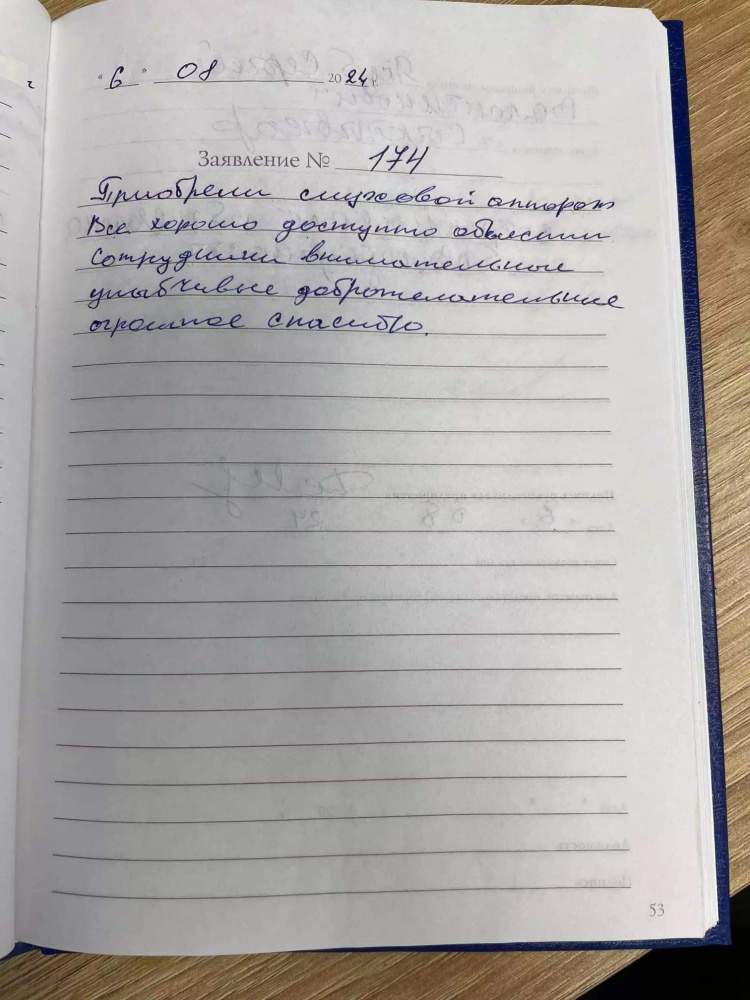 " 6 " 08 2024 г.
Заявление № 174
Приобрели слуховой аппарат
Все хорошо доступно объяснили
сотрудники внимательные
улыбчивые доброжелательные
огромное спасибо.
53